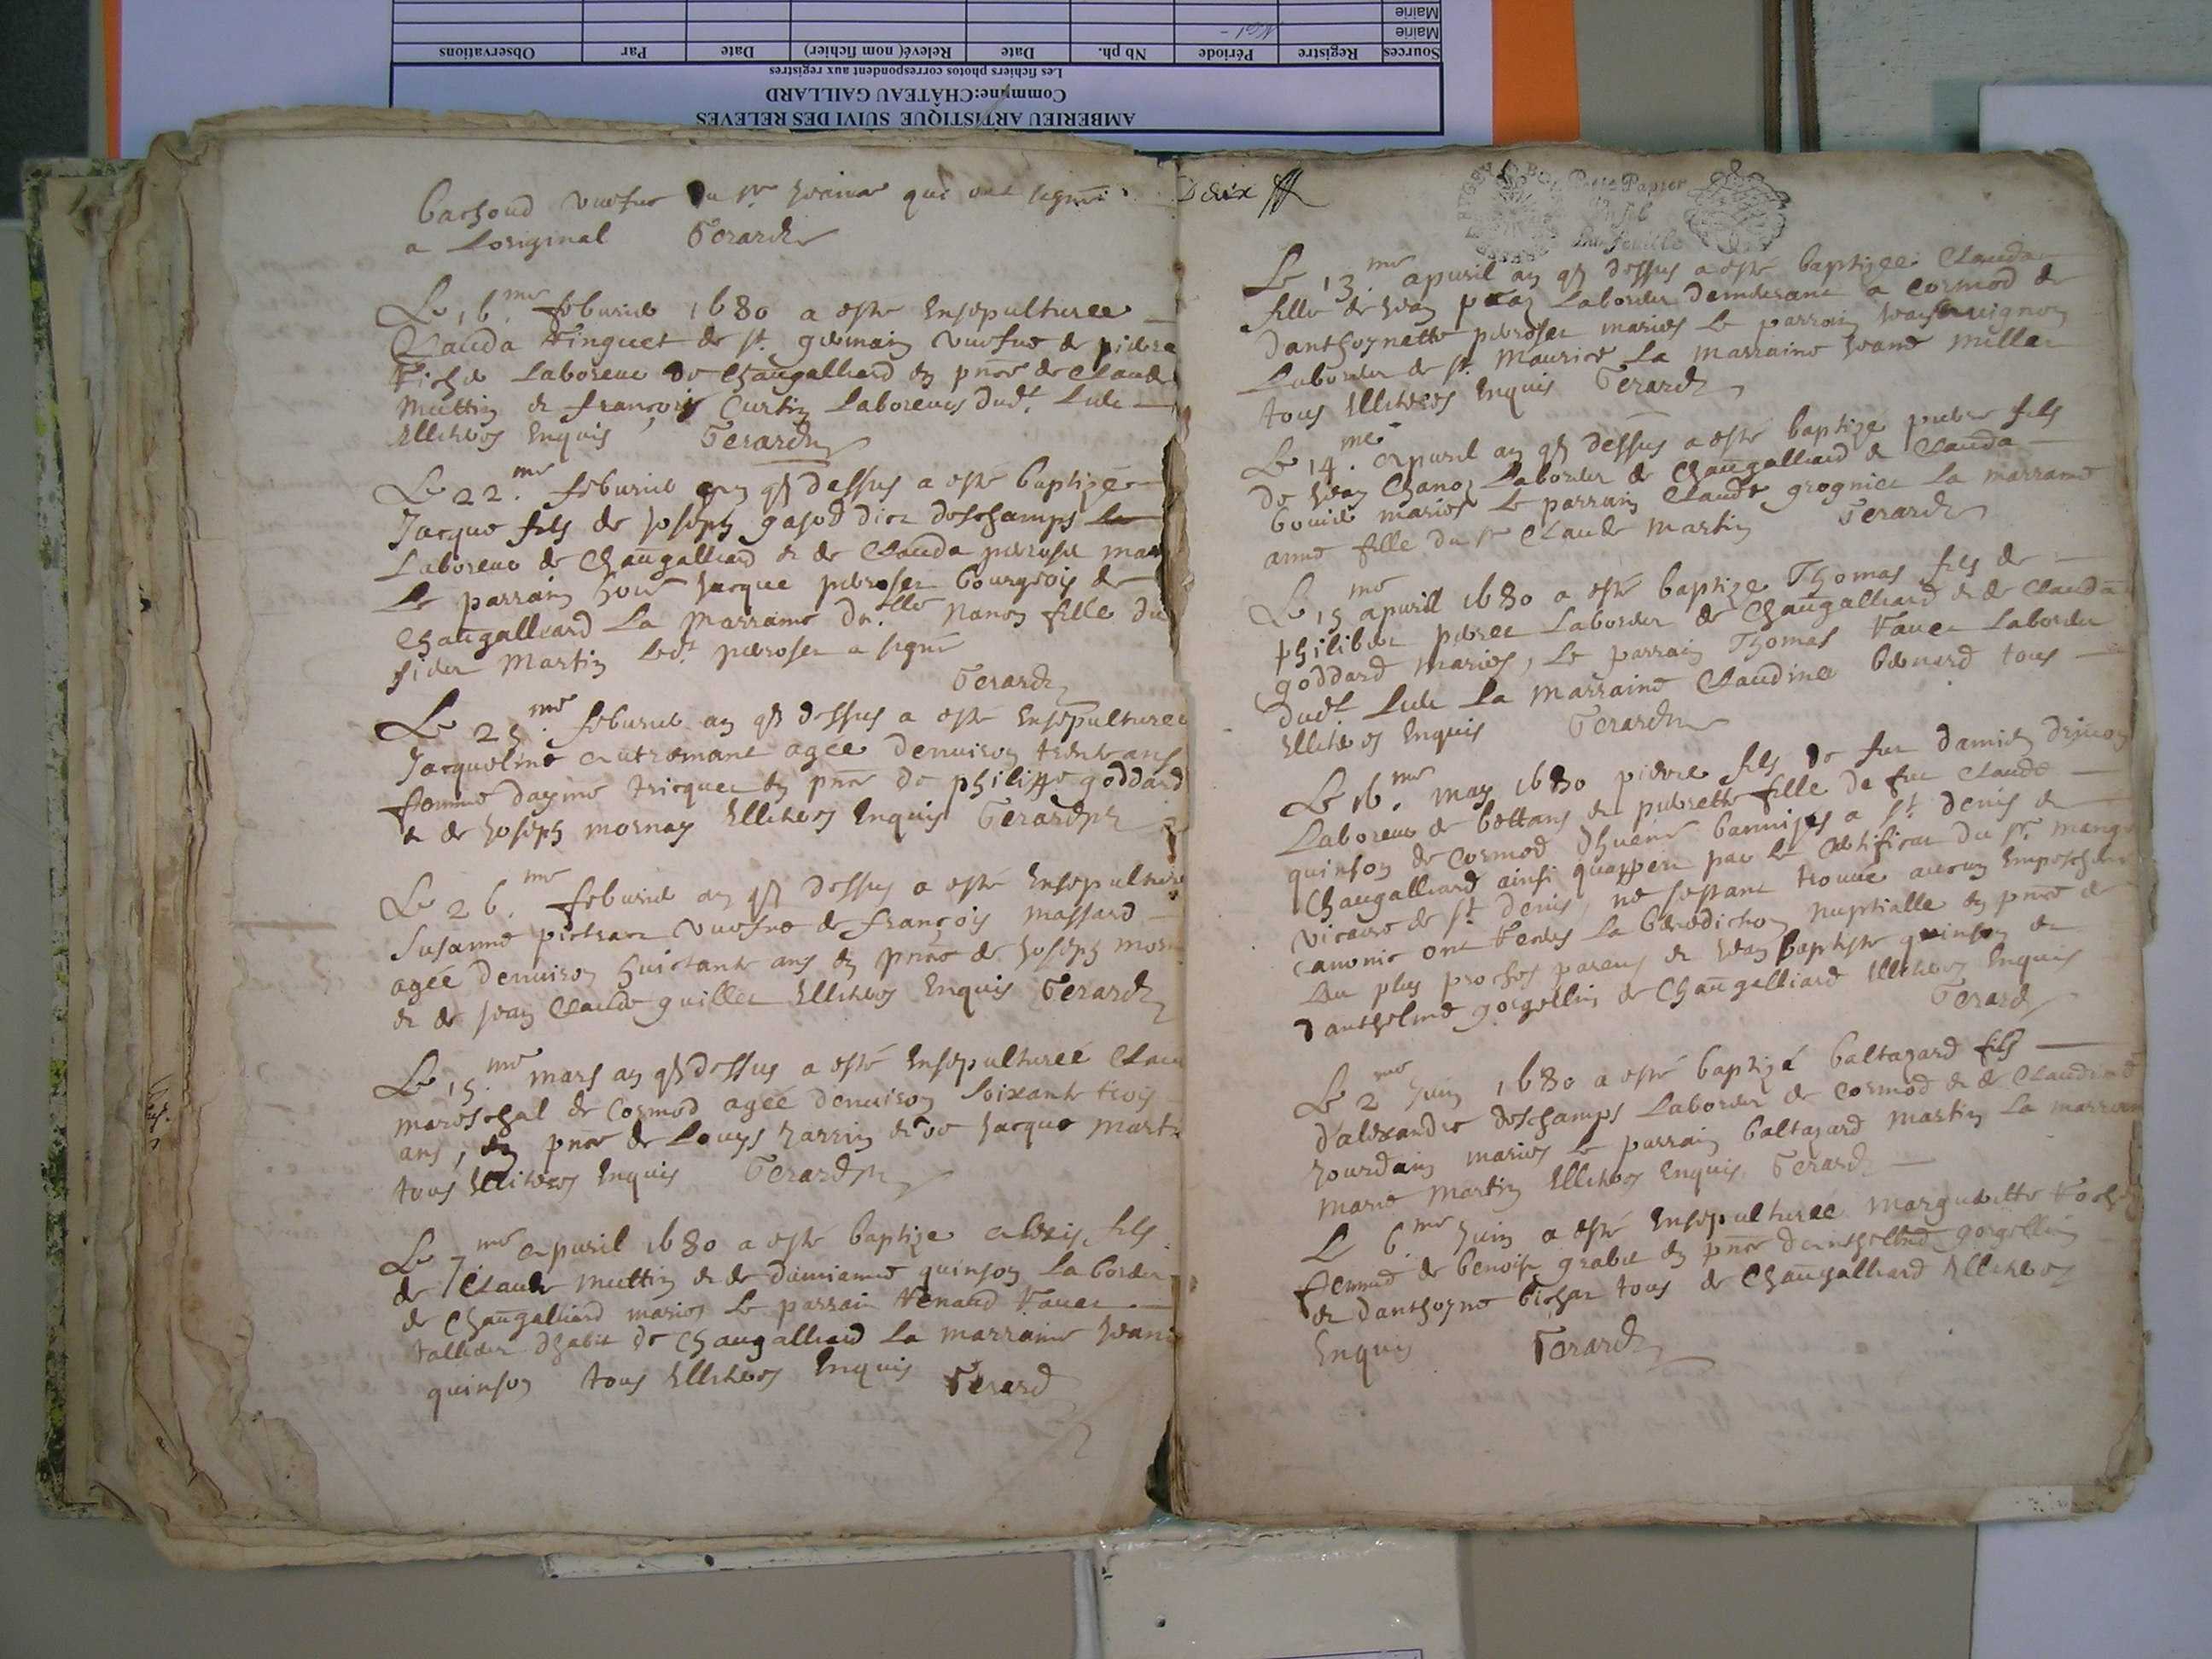 AMBERIEU ARTISTIQUE SUIVI DES RELEVES
Commune:CHÂTEAU GAILLARD
Les fichiers photos correspondent aux registres
Sources Registre Période Nb ph. Date Relevé( nom fichier) Date Par Observations
Mairie
Mairie
Bachoud vuefue du sr qui ont signé
a Loriginal Gerard
Le 16.me feburier 1680 a esté Ensepulturee
Clauda Vinguet de st. germain vuefue de pierre
Laboreur de Chaugalliard en pnce de Claude
Muttin et françois Curtin Laboreurs dudt. Lieu
Illiteres Enquis Gerard
Le 22.me feburier an qs dessus a esté baptizé
Jacque fils de joseph gajod dict deschamps
Laboreur de Chaugalliard et de Clauda perroset
Le parrain Jacque perroset bourgeois de
Chaugalliard La Marraine dn.lle Nanon fille du
sieur Martin Ledt. perroset a signé
Gerard
Le 25.me feburier an qs dessus a esté Ensepulturee
Jacqueline agee denuiron trente ans
femme dayme tricquet en pnce de philippe goddard
et de Joseph mornay Illiteres Enquis Gerard
Le 26.me feburier an qs dessus a esté
Susanne vuefue de françois massard
agée denuiron huictante ans en pnce de Joseph
et de Jean Claude guillet Illiteres Enquis Gerard
Le 15.me mars an qs dessus a esté Ensepulturéé
mareschal de Cormod agée denuiron Soixante trois
ans, en pnce de Louys et de Jacque
tous Illiteres Enquis Gerard
Le 7.me apuril 1680 a esté baptize alexis fils
de Claude muttin et de damianne quinson Laboreur
de Chaugalliard maries Le parrain Renaud Fauet
tallieur dhabit de Chaugalliard La marraine
quinson tous Illiteres Enquis Gerard
Deux
Petit Papier
Un sol
La feuille
Le 13.me apuril an qs dessus a esté baptizee Clauda
fille de Jean Laboreur demeurant a Cormod et
danthoynette perroset maries Le parrain
Laboreur de st. Maurice La Marraine Jeane Millet
tous Illiteres Enquis Gerard
Le 14.me apuril an qs dessus a esté baptize pierre fils
de Jean Chanoz Laboreur de Chaugalliard et Clauda
bouuier maries Le parrain Claude grogniet La marraine
anne fille du sr Claude Martin Gerard
Le 15me apuril 1680 a esté baptize Thomas fils de
philibert Laboreur de Chaugalliard et de Clauda
goddard Maries, Le parrain Thomas Fauet Laboreur
dudt. Lieu La Marraine Claudine bernard tous
Illiteres Enquis Gerard
Le 16.me may 1680 pierre fils de feu damien
Laboreur de bettans et pierrette fille de feu Claude
quinson de Cormod bannises a st. denis et
Chaugalliard ainsi quappert par le certificat du sr.
vicaire de st. denis, ne sestant trouué aucun
canonic ont Receus La benediction nuptialle en pnce de
Leu plus proches parens et Jean baptiste quinson et
danthelme gorgellin de Chaugalliard Illiteres Enquis
Gerard
Le 2me Juin 1680 a esté baptizé baltazard fils
d'alexandre deschamps Laboreur de Cormod et de
Jourdain maries Le parrain baltazard Martin La
Marie Martin Illiteres Enquis Gerard
Le 6.me Juin a esté Ensepulturéé Margueritte
femme de benoist grabit en pnce danthelme gorgellin
et danthoyne bichat tous de Chaugalliard Illiteres
Enquis Gerard